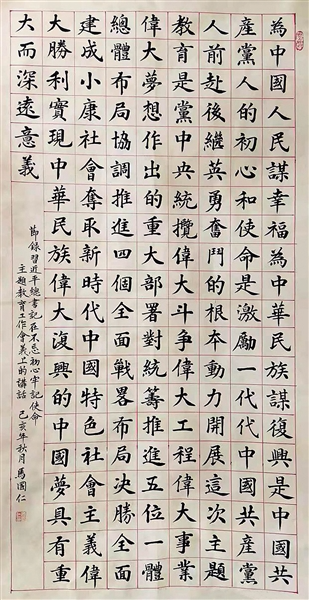 為中國人民謀幸福為中華民族謀復興是中國共
產黨人的初心和使命是激勵一代代中國共產黨
人前赴後繼英勇奮鬥的根本動力開展這次主題
教育是黨中央統攬偉大斗爭偉大工程偉大事業
偉大夢想作出的重大部署對統籌推進五位一體
總體布局協調推進四個全面戰畧布局決勝全面
建成小康社會奪取新時代中國特色社會主義偉
大勝利實現中華民族偉大復興的中國夢具有重
大而深遠意義
節錄習近平總書記在不忘初心牢記使命
主題教育工作會義上的講話 己亥年秋月馬國仁